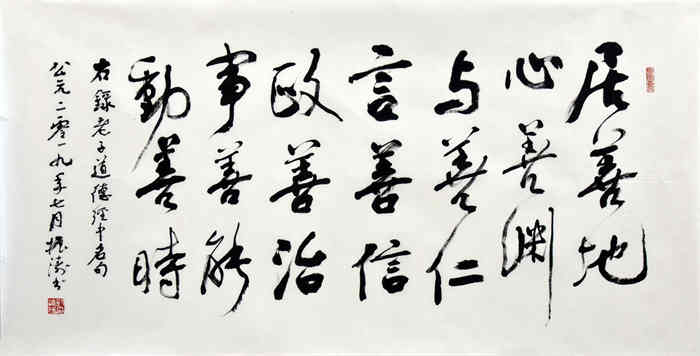 居善地
心善渊
与善仁
言善信
政善治
事善能
動善時
右録老子道德经中名句
公元二零一九年七月振涛书